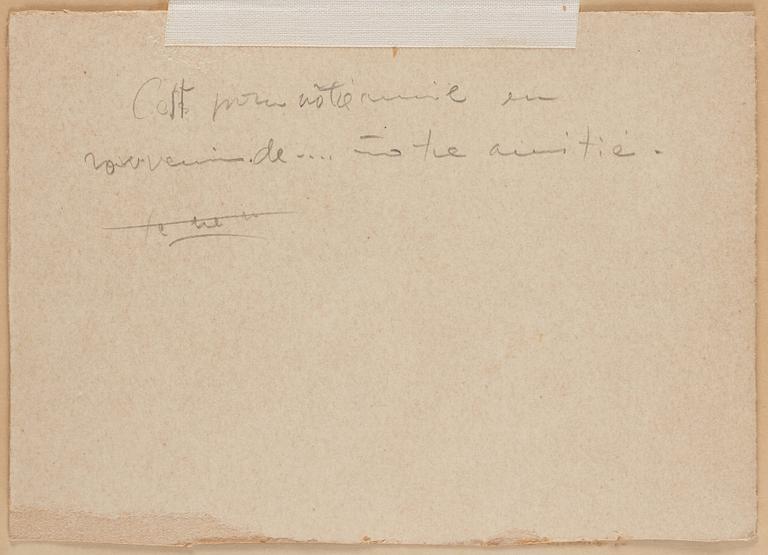 C'est pour nôtre amie en
souvenir de.... notre amitié.